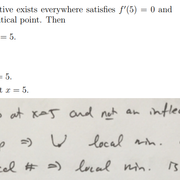 tive exists everywhere satisfies f′(5) = 0 and
tical point. Then
= 5.
= 5.
t x = 5.
at x=5 and not an infle
⇒ ∪ local min.
# ⇒ local min. is